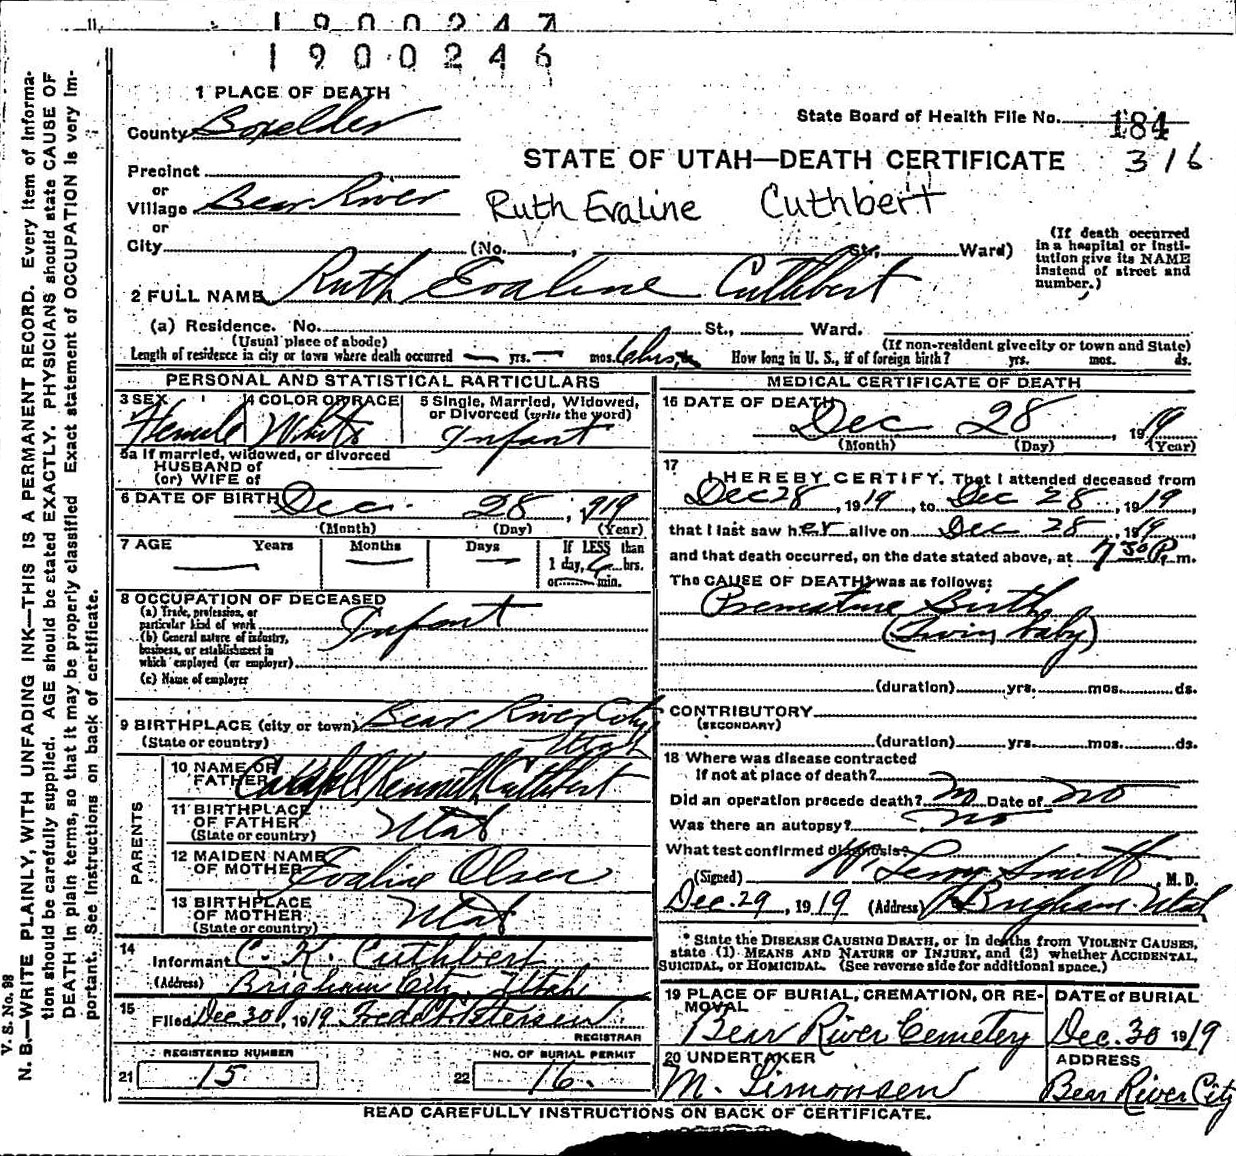 11
1900247
1900246
1 PLACE OF DEATH
County Boxelder
State Board of Health File No. 184
316
STATE OF UTAH—DEATH CERTIFICATE
Precinct
or
Village Bear River
Ruth Evaline Cuthbert
or
City (No. , St., Ward)
(If death occurred
in a hospital or insti-
tution give its NAME
instead of street and
number.)
2 FULL NAME Ruth Evaline Cuthbert
(a) Residence. No. St., Ward.
(Usual place of abode) (If non-resident give city or town and State)
Length of residence in city or town where death occurred — yrs. — mos. 6 hrs. ds. How long in U. S., if of foreign birth? yrs. mos. ds.
PERSONAL AND STATISTICAL PARTICULARS
3 SEX 4 COLOR OR RACE 5 Single, Married, Widowed,
or Divorced (write the word)
Female White Infant
5a If married, widowed, or divorced
HUSBAND of
(or) WIFE of
6 DATE OF BIRTH Dec. 28, 1919
(Month) (Day) (Year)
7 AGE Years Months Days If LESS than
1 day, 6 hrs.
or min.
8 OCCUPATION OF DECEASED
(a) Trade, profession, or
particular kind of work Infant
(b) General nature of industry,
business, or establishment in
which employed (or employer)
(c) Name of employer
9 BIRTHPLACE (city or town) Bear River City
(State or country) Utah
PARENTS
10 NAME OF
FATHER Campbell Kenneth Cuthbert
11 BIRTHPLACE
OF FATHER Utah
(State or country)
12 MAIDEN NAME
OF MOTHER Evaline Olsen
13 BIRTHPLACE
OF MOTHER Utah
(State or country)
14
Informant C. K. Cuthbert
(Address) Brigham City, Utah
15
Filed Dec 30, 1919
REGISTRAR
REGISTERED NUMBER NO. OF BURIAL PERMIT
21 15 22 16.
MEDICAL CERTIFICATE OF DEATH
16 DATE OF DEATH
Dec 28, 1919
(Month) (Day) (Year)
17
I HEREBY CERTIFY, That I attended deceased from
Dec 28, 1919, to Dec 28, 1919
that I last saw her alive on Dec 28, 1919
and that death occurred, on the date stated above, at 7 30 P. m.
The CAUSE OF DEATH was as follows:
Premature Birth
(Twin baby)
(duration) yrs. mos. ds.
CONTRIBUTORY
(SECONDARY)
(duration) yrs. mos. ds.
18 Where was disease contracted
If not at place of death?
Did an operation precede death? no Date of no
Was there an autopsy? no
What test confirmed diagnosis?
(Signed) W. Leroy Smith, M. D.
Dec. 29, 1919 (Address) Brigham Utah
* State the DISEASE CAUSING DEATH, or in deaths from VIOLENT CAUSES,
state (1) MEANS AND NATURE OF INJURY, and (2) whether ACCIDENTAL,
SUICIDAL, or HOMICIDAL. (See reverse side for additional space.)
19 PLACE OF BURIAL, CREMATION, OR RE-
MOVAL DATE of BURIAL
Bear River Cemetery Dec. 30 1919
20 UNDERTAKER ADDRESS
M. Simonsen Bear River City
READ CAREFULLY INSTRUCTIONS ON BACK OF CERTIFICATE.
V. S. No. 98
N. B.—WRITE PLAINLY, WITH UNFADING INK—THIS IS A PERMANENT RECORD. Every item of informa-
tion should be carefully supplied. AGE should be stated EXACTLY. PHYSICIANS should state CAUSE OF
DEATH in plain terms, so that it may be properly classified Exact statement of OCCUPATION is very im-
portant. See instructions on back of certificate.